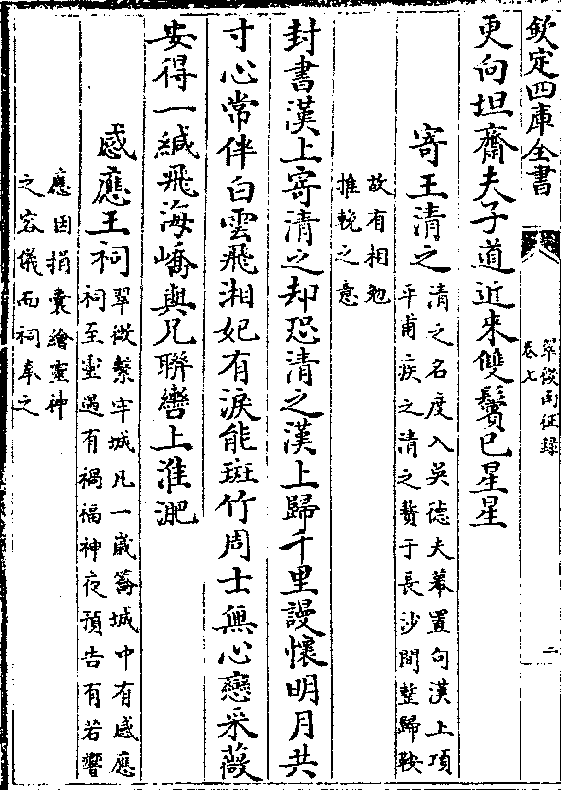 欽定四庫全書
翠微南征録
卷七
二
更向坦齋夫子道近來雙鬢已星星
寄王清之
清之名度入吳德夫幕置句漢上項
平甫疾之清之贅于長沙間整歸鞍
故有相勉
推輓之意
封書漢上寄清之却恐清之漢上歸千里謾懷明月共
寸心常伴白雲飛湘妃有淚能斑竹周士無心戀采薇
安得一緘飛海嶠與凡聯轡上淮淝
感應王祠
翠微繫牢城凡一歲篝城中有感應
祠至靈遇有禍福神夜預告有若響
應因捐囊繪靈神
之容儀而祠奉之